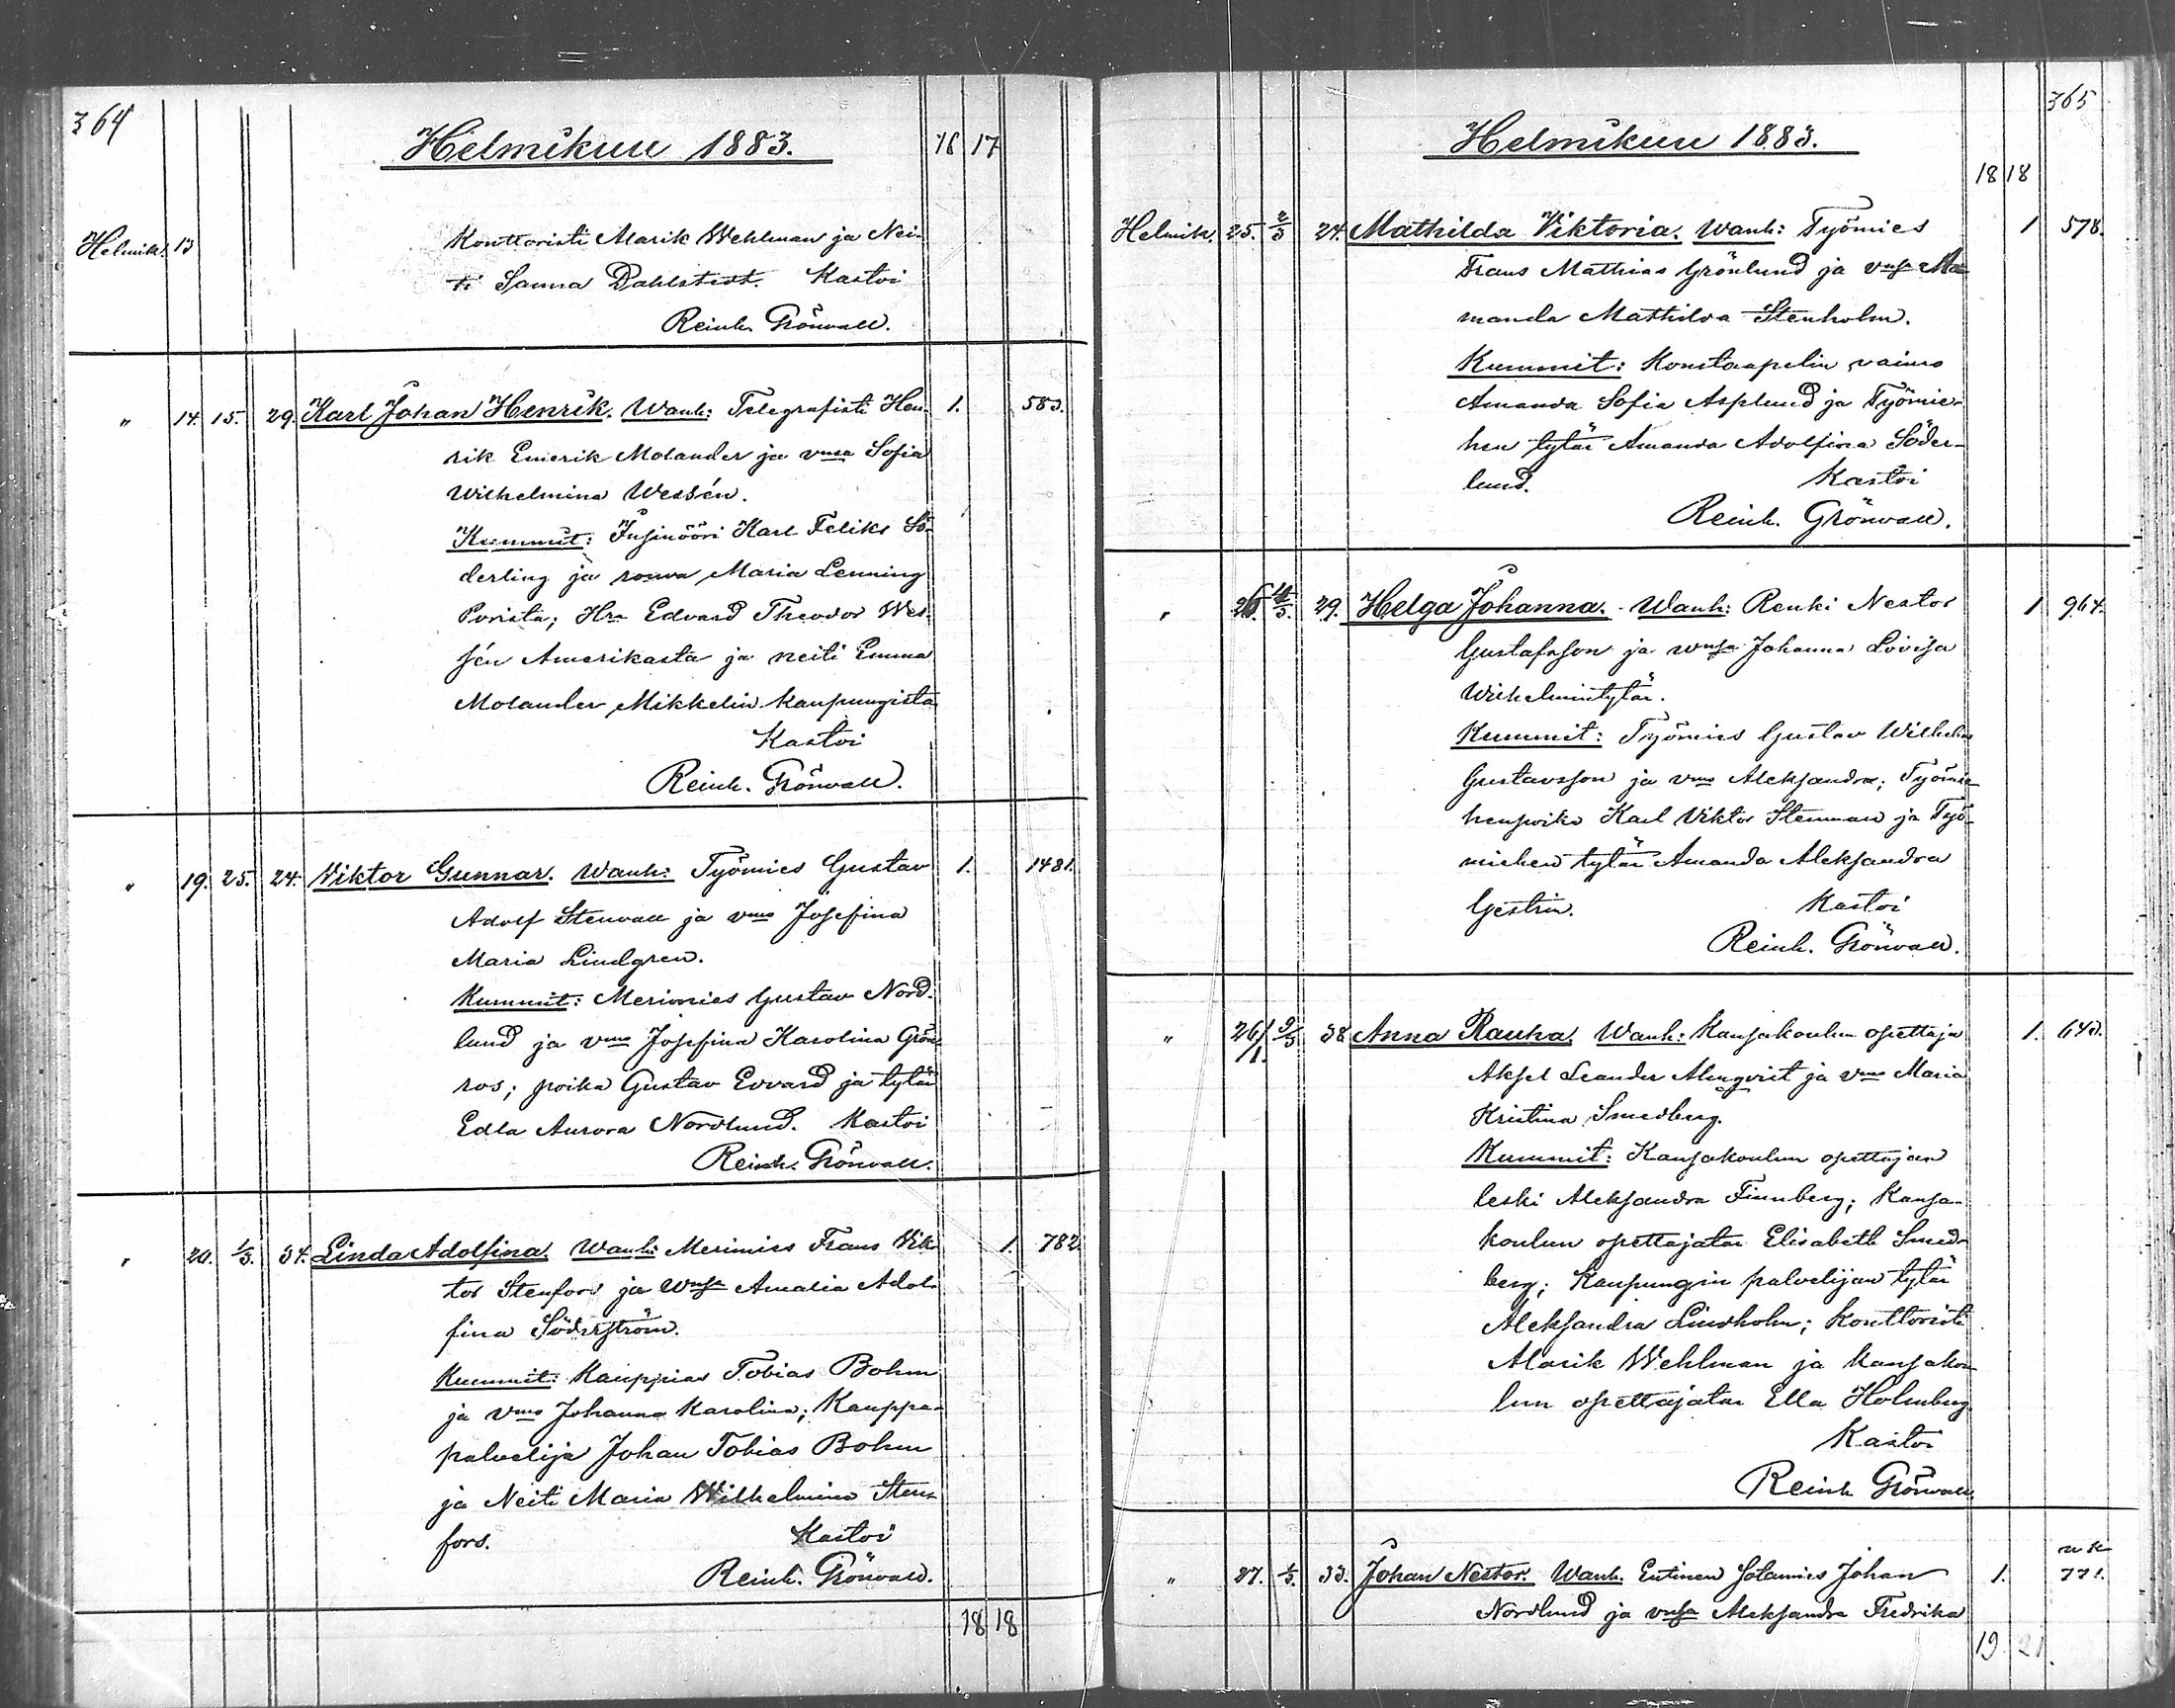 364
Helmikuu 1883. 16 17
Helmik. 13 Konttoristi Alarik Wehlman ja Nei-
ti Sanna Dahlstedt. Kastoi
Reinh. Grönvall.
" 14. 15. 29. Karl Johan Henrik. Wanh: Telegrafisti Hen- 1. 583.
rik Emerik Molander ja vmsa Sofia
Wilhelmina Wessén.
Kummit: Insinööri Karl Feliks Sö-
derling ja rouva Maria Lenning
Porista; Hra Edvard Theodor Wes-
sén Amerikasta ja neiti Emma
Molander Mikkelin kaupungista
Kastoi
Reinh. Grönvall.
" 19. 25. 24. Viktor Gunnar. Wanh: Työmies Gustav 1. 1481.
Adolf Stenvall ja vmo Josefina
Maria Lindgren.
Kummit: Merimies Gustav Nord-
lund ja vmo Josefina Karolina Grön-
ros; poika Gustav Edvard ja tytär
Edla Aurora Nordlund. Kastoi
Reinh. Grönvall.
" 20. 1/3. 34. Linda Adolfina. Wanh: Merimies Frans Vik- 1. 782.
tor Stenfors ja wmsa Amalia Adol-
fina Söderström.
Kummit: Kauppias Tobias Bohm
ja vmo Johanna Karolina; Kauppa-
palvelija Johan Tobias Bohm
ja Neiti Maria Wilhelmina Sten-
fors. Kastoi
Reinh. Grönvall.
18 18
365
Helmikuu 1883.
18 18
Helmik. 25. 2/3 24. Mathilda Viktoria. Wanh: Työmies 1 578.
Frans Mathias Grönlund ja vmsa A
manda Mathilda Stenholm.
Kummit: Konstaapelin vaimo
Amanda Sofia Asplund ja Työmie-
hen tytär Amanda Adolfina Söder-
lund. Kastoi
Reinh. Grönvall.
" 26. /3. 29. Helga Johanna. Wanh: Renki Nestor 1 964.
Gustafsson ja wmsa Johanna Lovisa
Wilhelmintytär.
Kummit: Työmies Gustav Wilhelm
Gustavsson ja vmo Aleksandra; Työmie-
henpoika Karl Viktor Stenman ja Työ-
miehen tytär Amanda Aleksandra
Gestrin. Kastoi
Reinh. Grönvall.
" 26/1. 9/3 38. Anna Rauha. Wanh: Kansakoulun opettaja 1. 643.
Aksel Leander Almqvist ja vmo Maria
Kristina Smedberg.
Kummit: Kansakoulun opettajan
leski Aleksandra Finnberg; Kansa-
koulun opettajatar Elisabeth Smed-
berg; Kaupungin palvelijan tytär
Aleksandra Lindholm; Konttoristi
Alarik Wehlman ja kansakou-
lun opettajatar Ella Holmberg.
Kastoi
Reinh Grönvall.
" 27. 1/3. 33. Johan Nestor. Wanh. Entinen Sotamies Johan 1. 771.
Nordlund ja vmsa Aleksandra Fredrika
19 21.